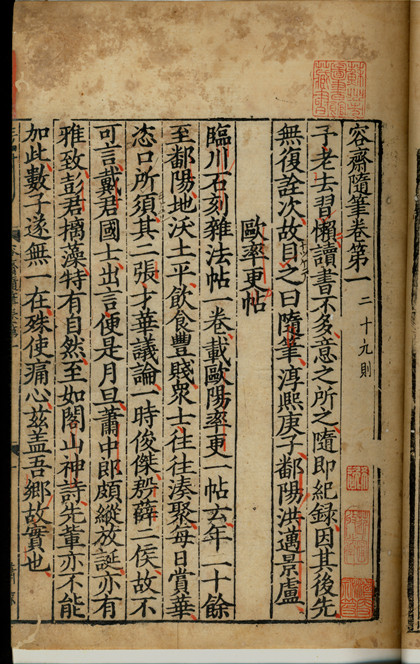 容齋隨筆卷第一 二十九則
予老去習懶讀書不多意之所之隨即紀錄因其後先
無復詮次故目之曰隨筆淳熙庚子鄱陽洪邁景盧
歐率更帖
臨川石刻雜法帖一卷載歐陽率更一帖云年二十餘
至鄱陽地沃土平飲食豐賤衆士往往湊聚每日賞華
恣口所須其二張才華議論一時俊傑殷薛二侯故不
可言戴君國士出言便是月旦蕭中郎頗縱放誕亦有
雅致彭君摛藻特有自然至如閣山神詩先輩亦不能
如此數子遂無一在殊使痛心茲蓋吾鄉故實也